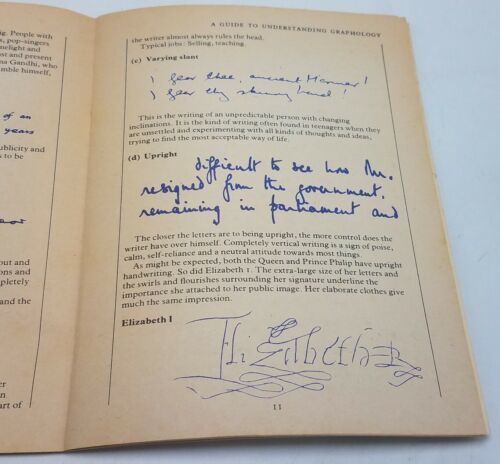 ng. People with
, pop-singers
nelight and
st and present
na Gandhi, who
mble himself,
of an
years
ublicity and
s to be
out and
ons and
pletely
and the
er
art of
A GUIDE TO UNDERSTANDING GRAPHOLOGY
the writer almost always rules the head.
Typical jobs: Selling, teaching.
(c) Varying slant
I fear thee, ancient Mariner!
I fear thy skinny hand!
This is the writing of an unpredictable person with changing
inclinations. It is the kind of writing often found in teenagers when they
are unsettled and experimenting with all kinds of thoughts and ideas,
trying to find the most acceptable way of life.
(d) Upright
difficult to see how Mr.
resigned from the government,
remaining in parliament and
The closer the letters are to being upright, the more control does the
writer have over himself. Completely vertical writing is a sign of poise,
calm, self-reliance and a neutral attitude towards most things.
As might be expected, both the Queen and Prince Philip have upright
handwriting. So did Elizabeth I. The extra-large size of her letters and
the swirls and flourishes surrounding her signature underline the
importance she attached to her public image. Her elaborate clothes give
much the same impression.
Elizabeth I
Elizabeth R
11